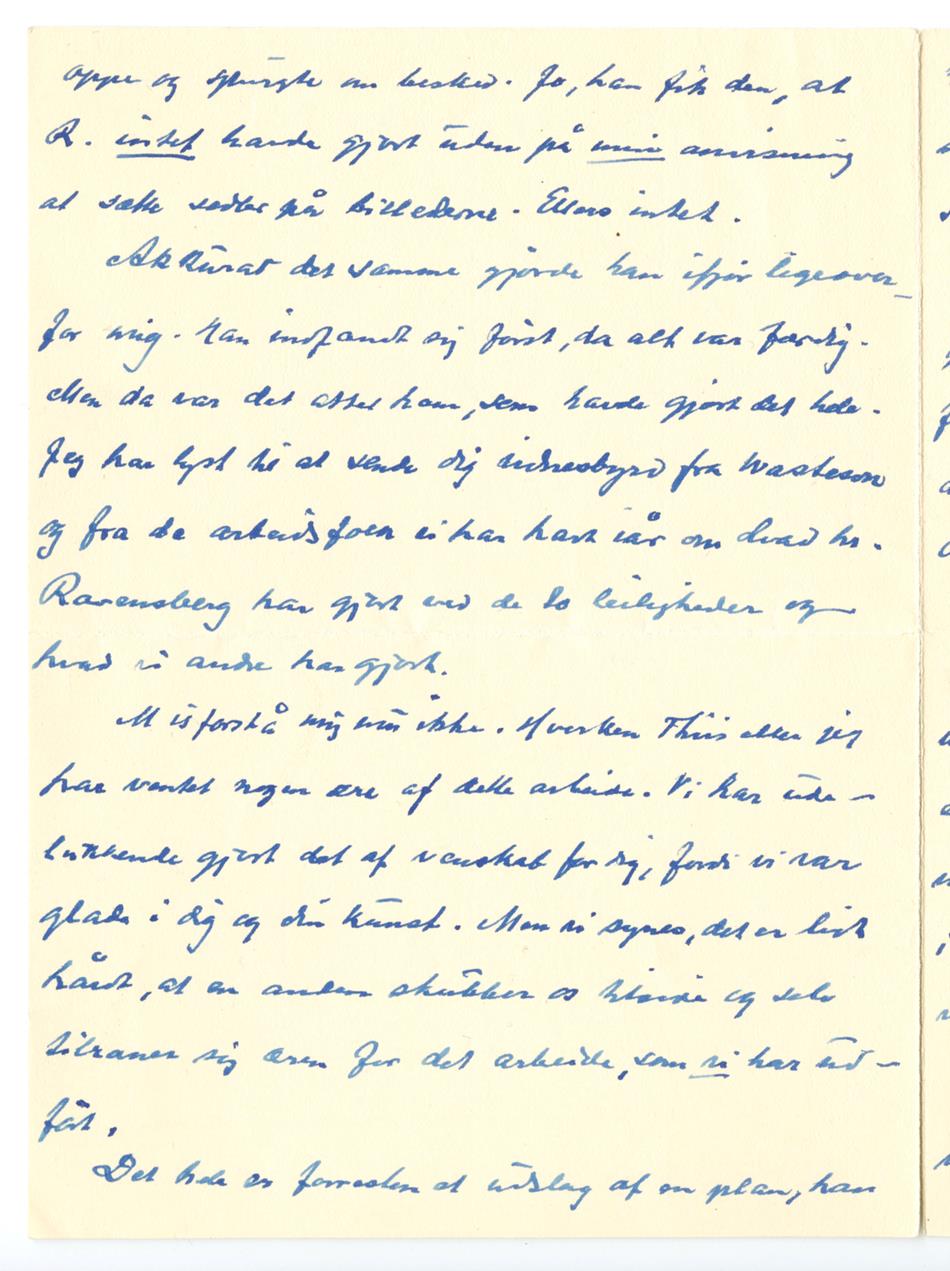 oppe og spurgte om besked. Jo, han fik den, at
R. intet havde gjort uden på min anvisning
at sætte sedler på billederne. Ellers intet.
Akkurat det samme gjorde han ifjor ligeover-
for mig. Han indfandt sig først, da alt var færdig.
Men da var det attet ham, som havde gjort det hele.
Jeg har lyst til at sende dig vidnesbyrd fra Wasteson
og fra de arbeidsfolk vi har havt iår om hvad hr.
Ravensberg har gjort ved de to leiligheder og
hvad vi andre har gjort.
Misforstå mig nu ikke. Hverken Thiis eller jeg
har ventet nogen ære af dette arbeide. Vi har ude-
lukkende gjort det af venskab for dig, fordi vi var
glade i dig og din kunst. Men vi synes, det er lidt
hårdt, at en anden skubber os tilside og selv
tilraner sig æren for det arbeide, som vi har ud-
ført.
Det hele er forresten et udslag af en plan, han